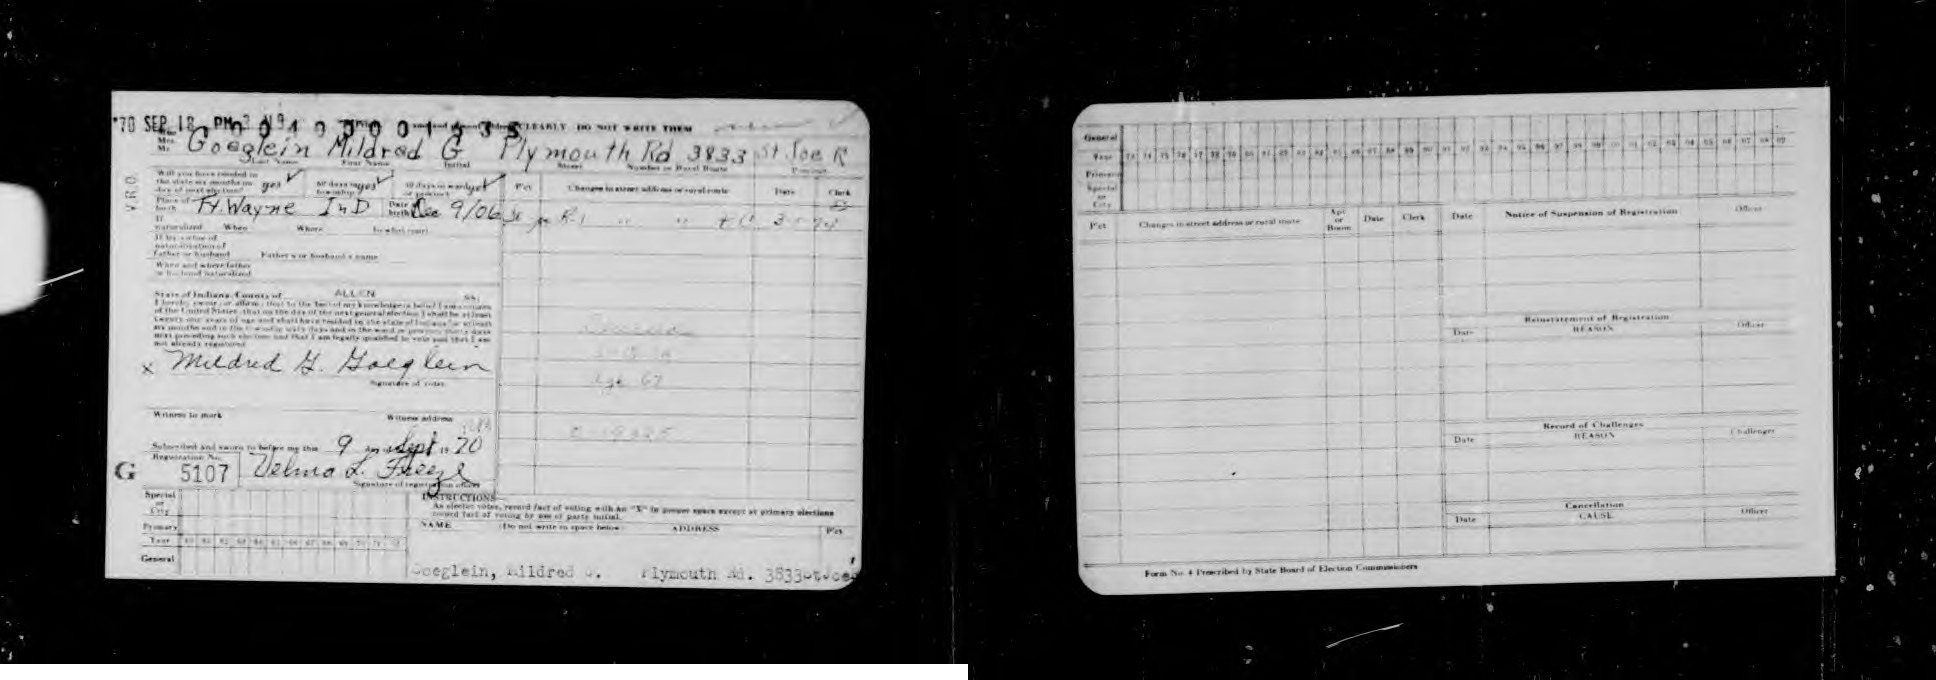 '70 SEP 18 PM 3
CLEARLY DO NOT WRITE THEM
V R O
Mrs. Goeglein Mildred G Plymouth Rd 3833 St Joe R
Last Name First Name Initial Street Number or Rural Route Precinct
Will you have resided in
the state six months on
day of next election? yes 60 days in township? yes
Pct Changes in street address or rural route Date Clerk
Place of birth Ft. Wayne Ind Date of birth Dec 9/06
R.1 " "
If naturalized When Where In what court
If by virtue of
naturalization of
father or husband Father's or husband's name
When and where father
or husband naturalized
State of Indiana, County of ALLEN SS:
I hereby swear (or affirm) that to the best of my knowledge & belief I am a citizen
of the United States, that on the day of the next general election I shall be at least
twenty-one years of age and shall have resided in the state of Indiana for at least
six months and in the township sixty days and in the ward or precinct thirty days
next preceding such election and that I am legally qualified to vote and that I am
not already registered
x Mildred G. Goeglein
Signature of voter
age 67
Witness to mark Witness address
Subscribed and sworn to before me this 9 day of Sept 19 70
Registration No.
G 5107 Velma L. Freeze
Signature of registration officer
Special
or
City
Primary
Year
General
INSTRUCTIONS
As elector votes, record fact of voting with an "X" in proper space except at primary elections
record fact of voting by use of party initial.
NAME (Do not write in space below) ADDRESS Pct
Goeglein, Mildred G. Plymouth Rd. 3833 St Joe
General
Year 73 74 75 76 77 78 79 80 81 82 83 84 85 86 87 88 89 90 91 92 93 94 95 96 97 98 99 00 01 02 03 04 05 06 07 08 09
Primary
Special
or
City
Pct Changes in street address or rural route Apt or Room Date Clerk
Date Notice of Suspension of Registration Officer
Reinstatement of Registration
Date REASON Officer
Record of Challenges
Date REASON Challenger
Cancellation
Date CAUSE Officer
Form No. 4 Prescribed by State Board of Election Commissioners